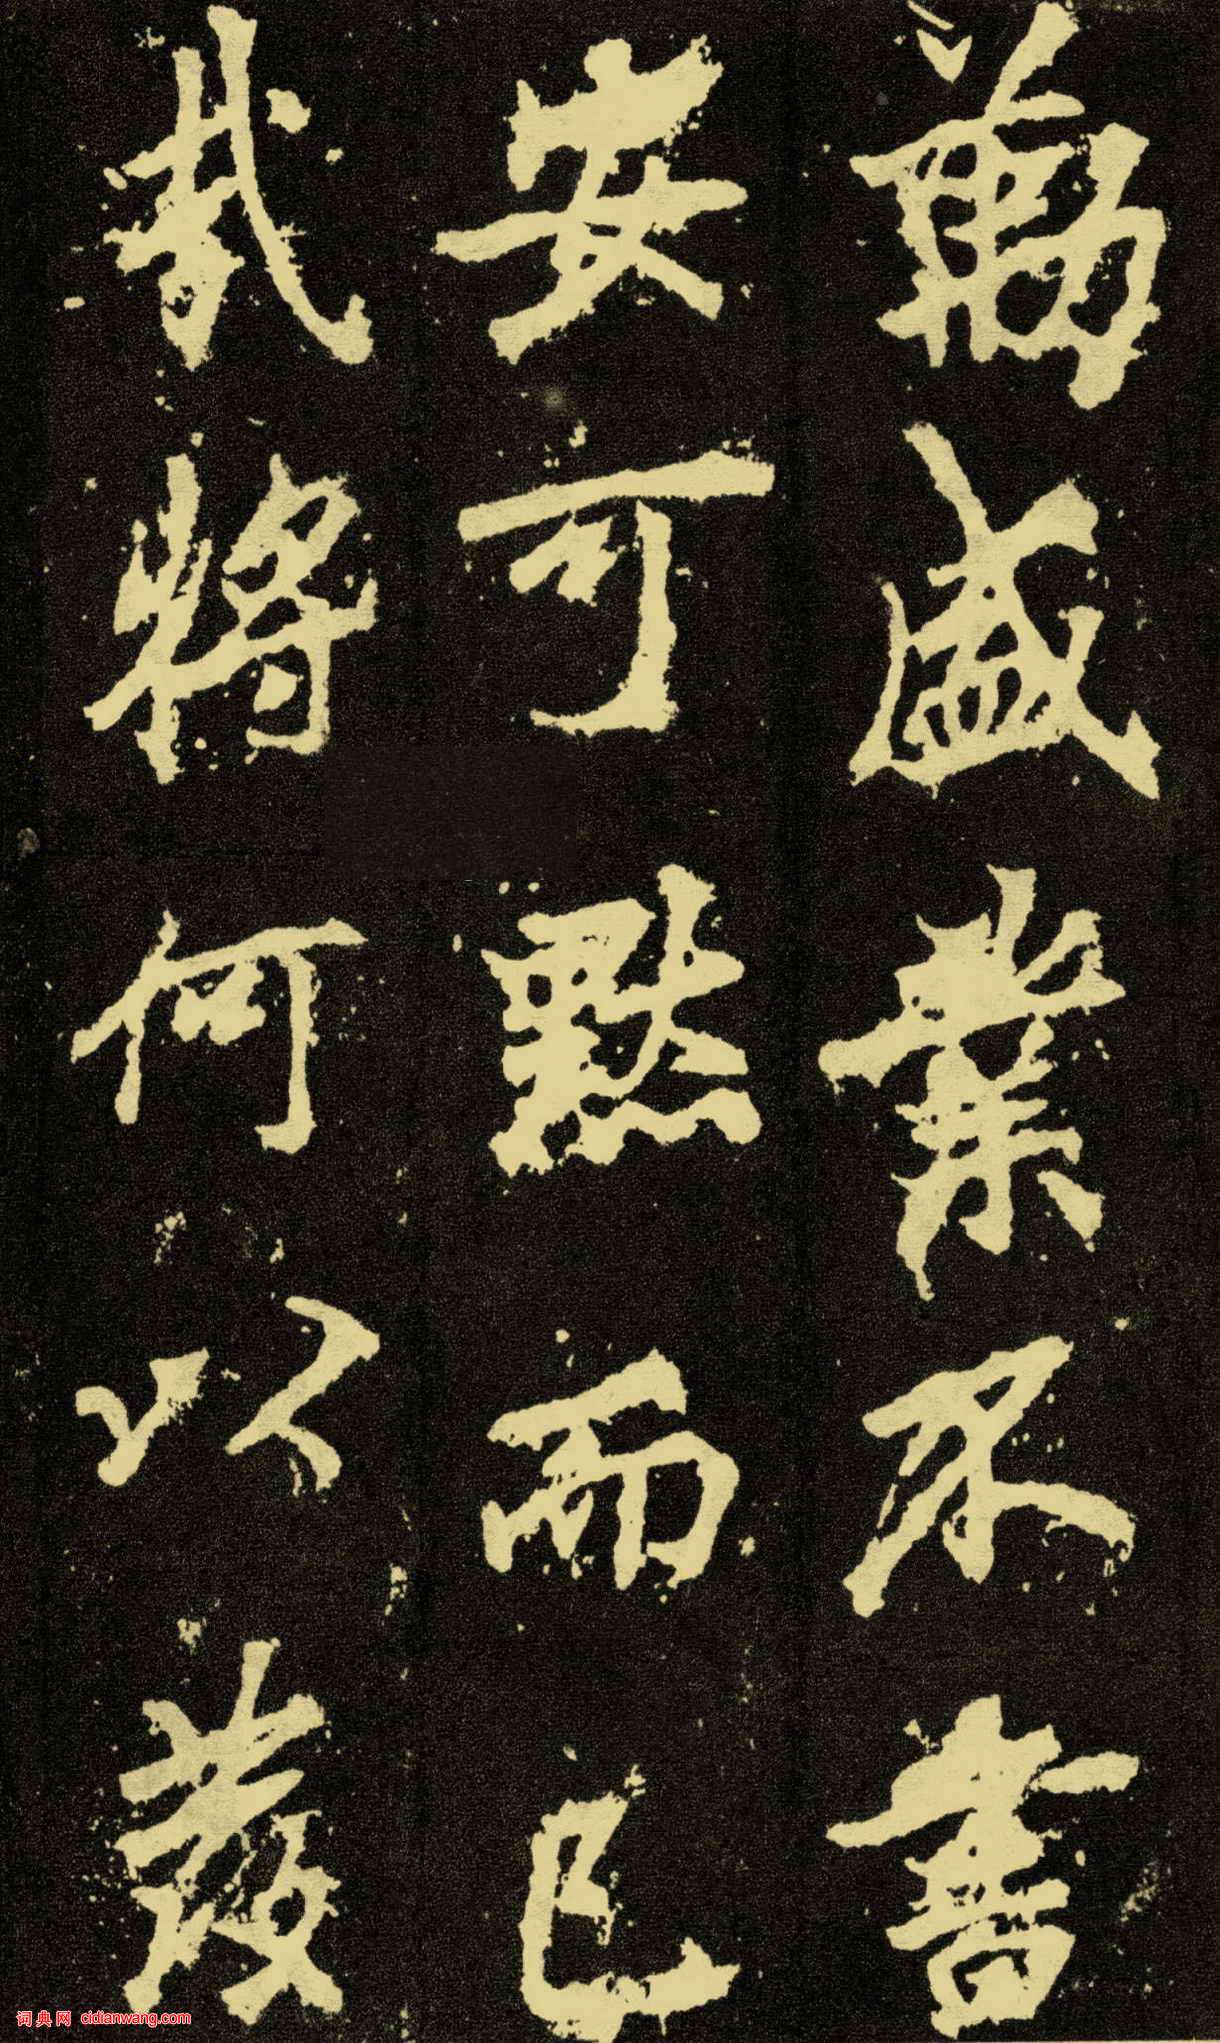 勛盛業不書
安可默而已
哉將何以發
词典网 cidianwang.com